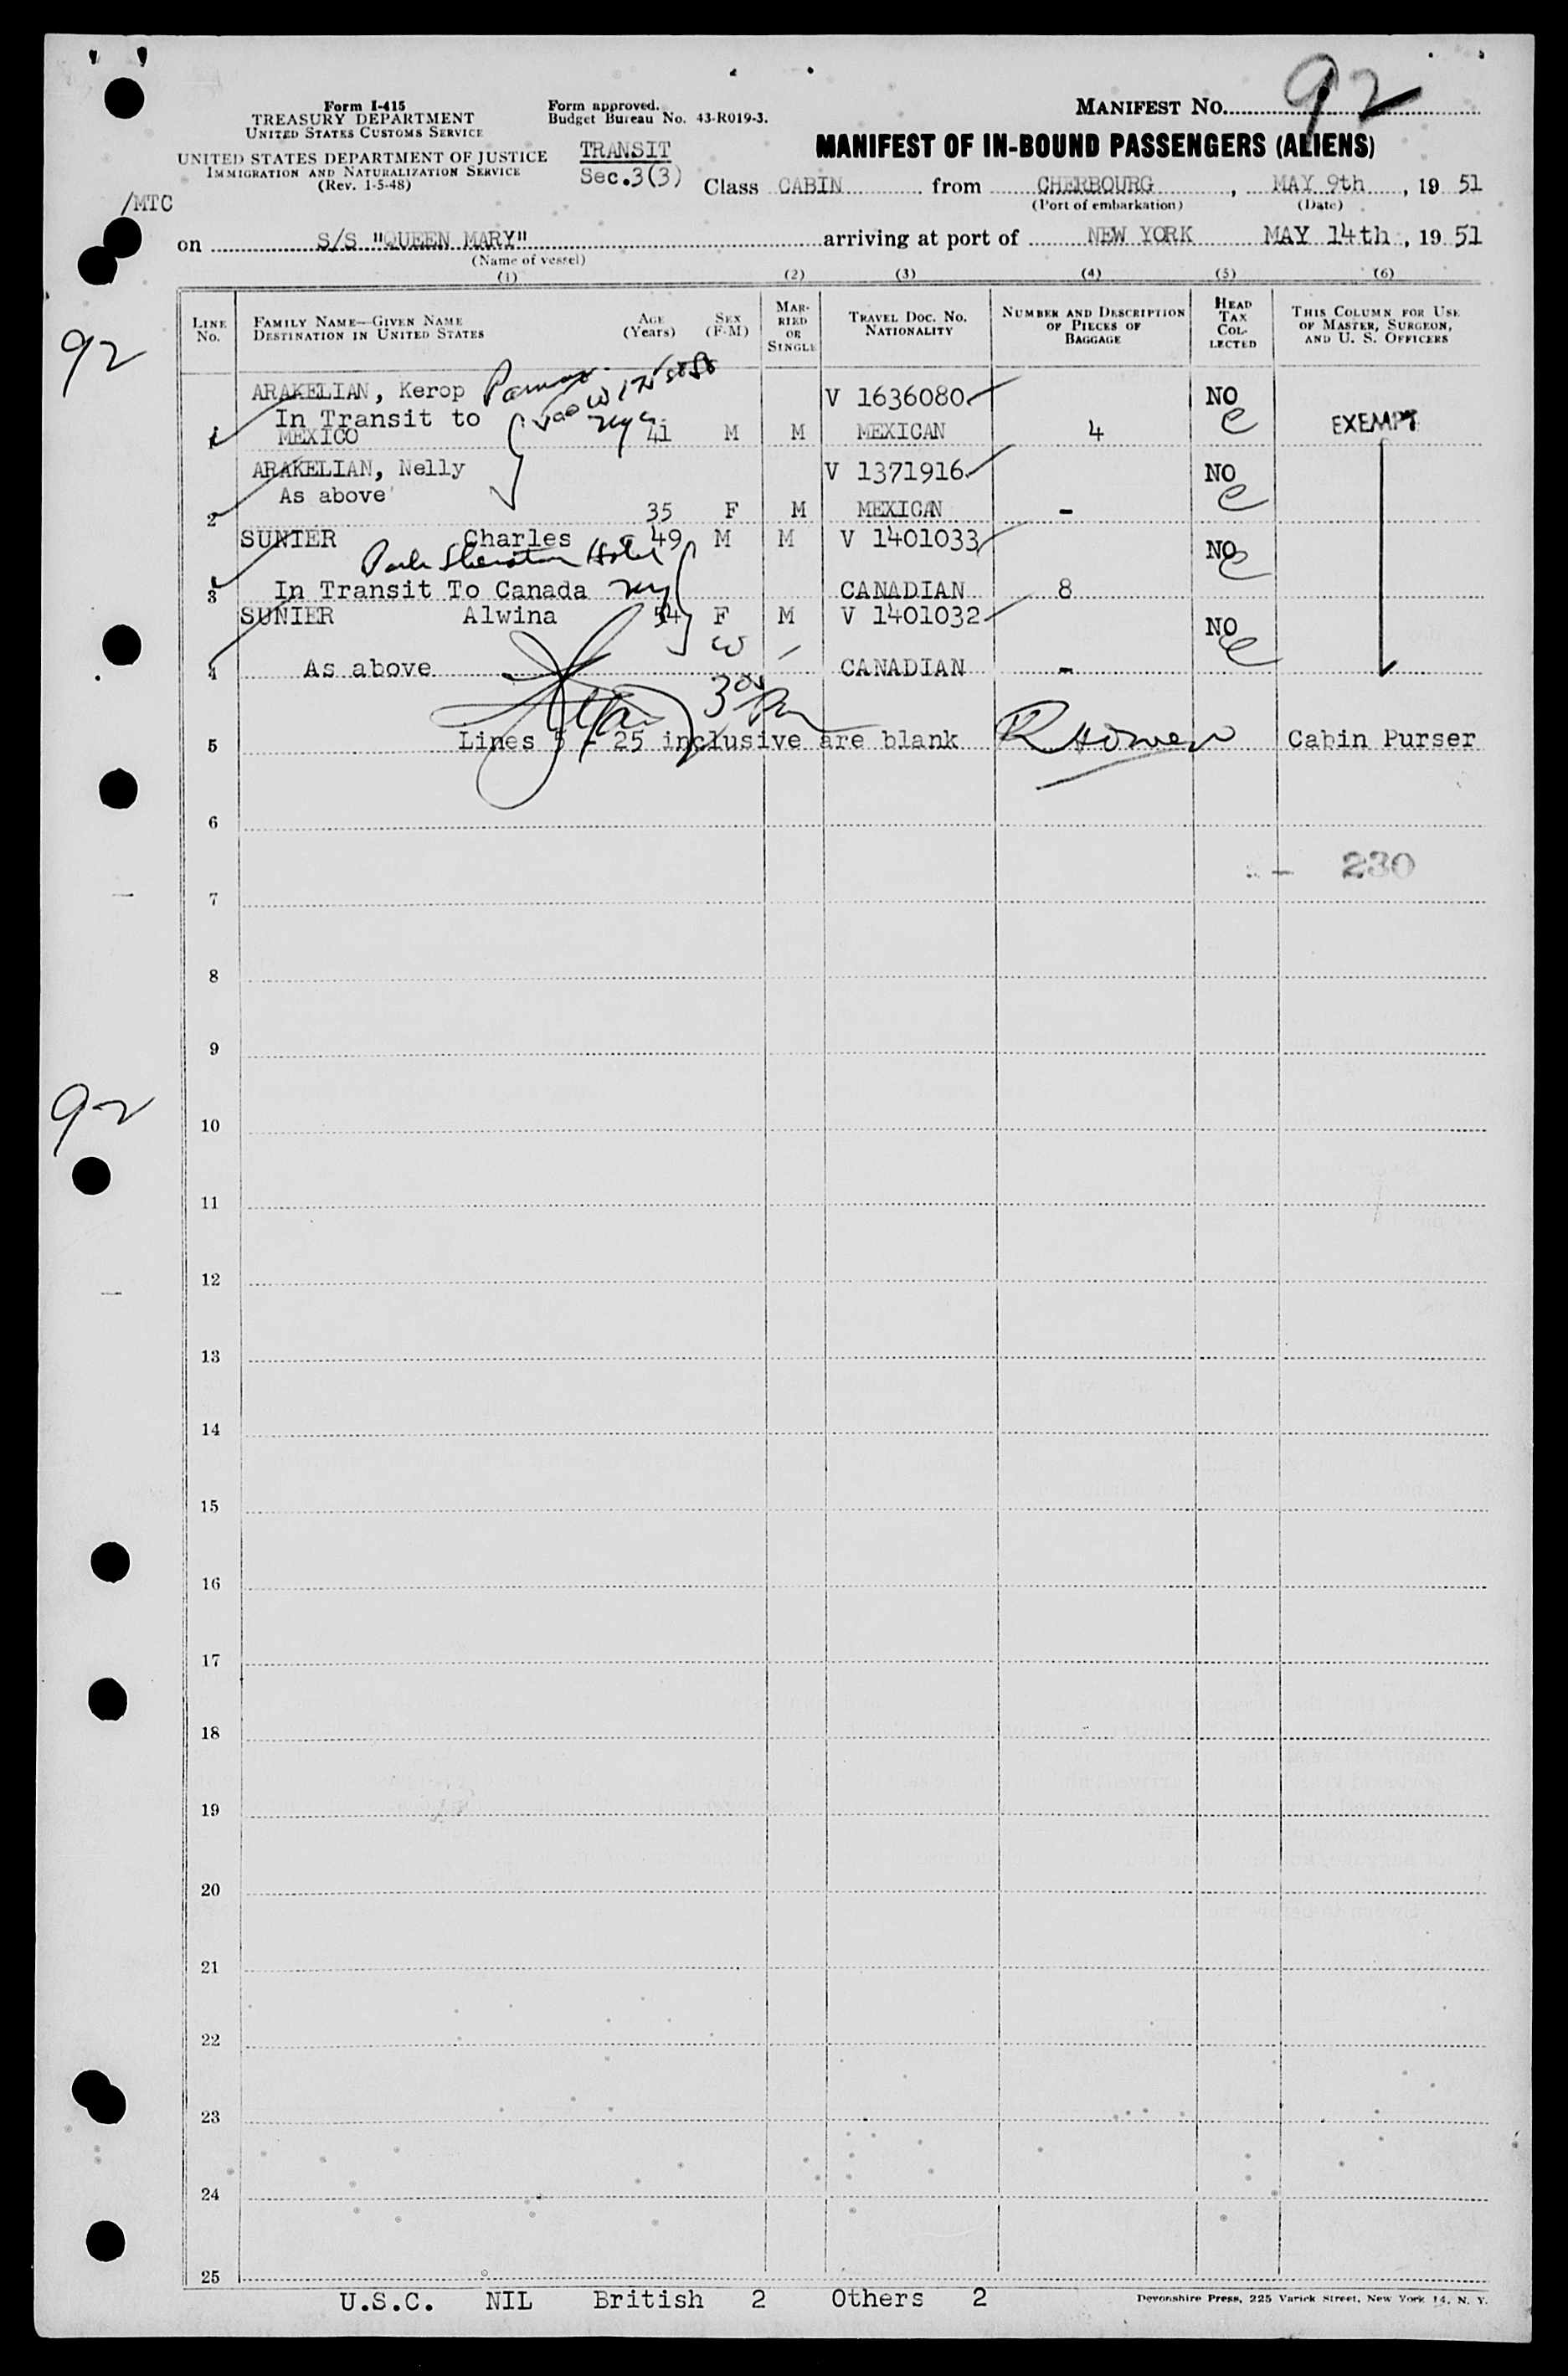 Form I-415
TREASURY DEPARTMENT
UNITED STATES CUSTOMS SERVICE
UNITED STATES DEPARTMENT OF JUSTICE
IMMIGRATION AND NATURALIZATION SERVICE
(Rev. 1-5-48)
Form approved.
Budget Bureau No. 43-R019-3.
TRANSIT
Sec.3(3)
MANIFEST NO. 92
MANIFEST OF IN-BOUND PASSENGERS (ALIENS)
Class CABIN from CHERBOURG, MAY 9th, 19 51
(Port of embarkation) (Date)
/MTC
on S/S "QUEEN MARY" arriving at port of NEW YORK MAY 14th, 19 51
(Name of vessel)
(1) (2) (3) (4) (5) (6)
LINE NO. FAMILY NAME—GIVEN NAME DESTINATION IN UNITED STATES AGE (YEARS) SEX (F-M) MARRIED OR SINGLE TRAVEL DOC. NO. NATIONALITY NUMBER AND DESCRIPTION OF PIECES OF BAGGAGE HEAD TAX COLLECTED THIS COLUMN FOR USE OF MASTER, SURGEON, AND U. S. OFFICERS
92
ARAKELIAN, Kerop V 1636080 NO
In Transit to
1 MEXICO 41 M M MEXICAN 4 EXEMPT
ARAKELIAN, Nelly V 1371916 NO
As above
2 35 F M MEXICAN -
SUNIER Charles 49 M M V 1401033 NO
Park Sheraton Hotel
3 In Transit To Canada NY CANADIAN 8
SUNIER Alwina 54 F M V 1401032 NO
4 As above CANADIAN -
5 Lines 5 - 25 inclusive are blank Cabin Purser
6
- 230
7
8
9
92
10
11
12
13
14
15
16
17
18
19
20
21
22
23
24
25
U.S.C. NIL British 2 Others 2
Devonshire Press, 225 Varick Street, New York 14, N. Y.